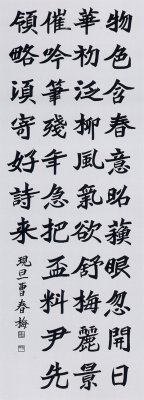 物色含春意昭蘓眼忽開日
華初泛柳風氣欲舒梅麗景
催吟筆殘年急把盃料尹先
領略湏寄好詩来
現旦曹春梅